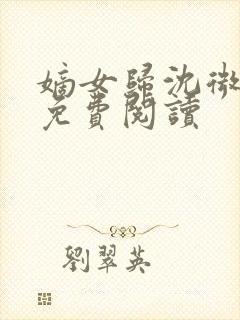 嫡女歸沈微
免費閱讀
劉翠英